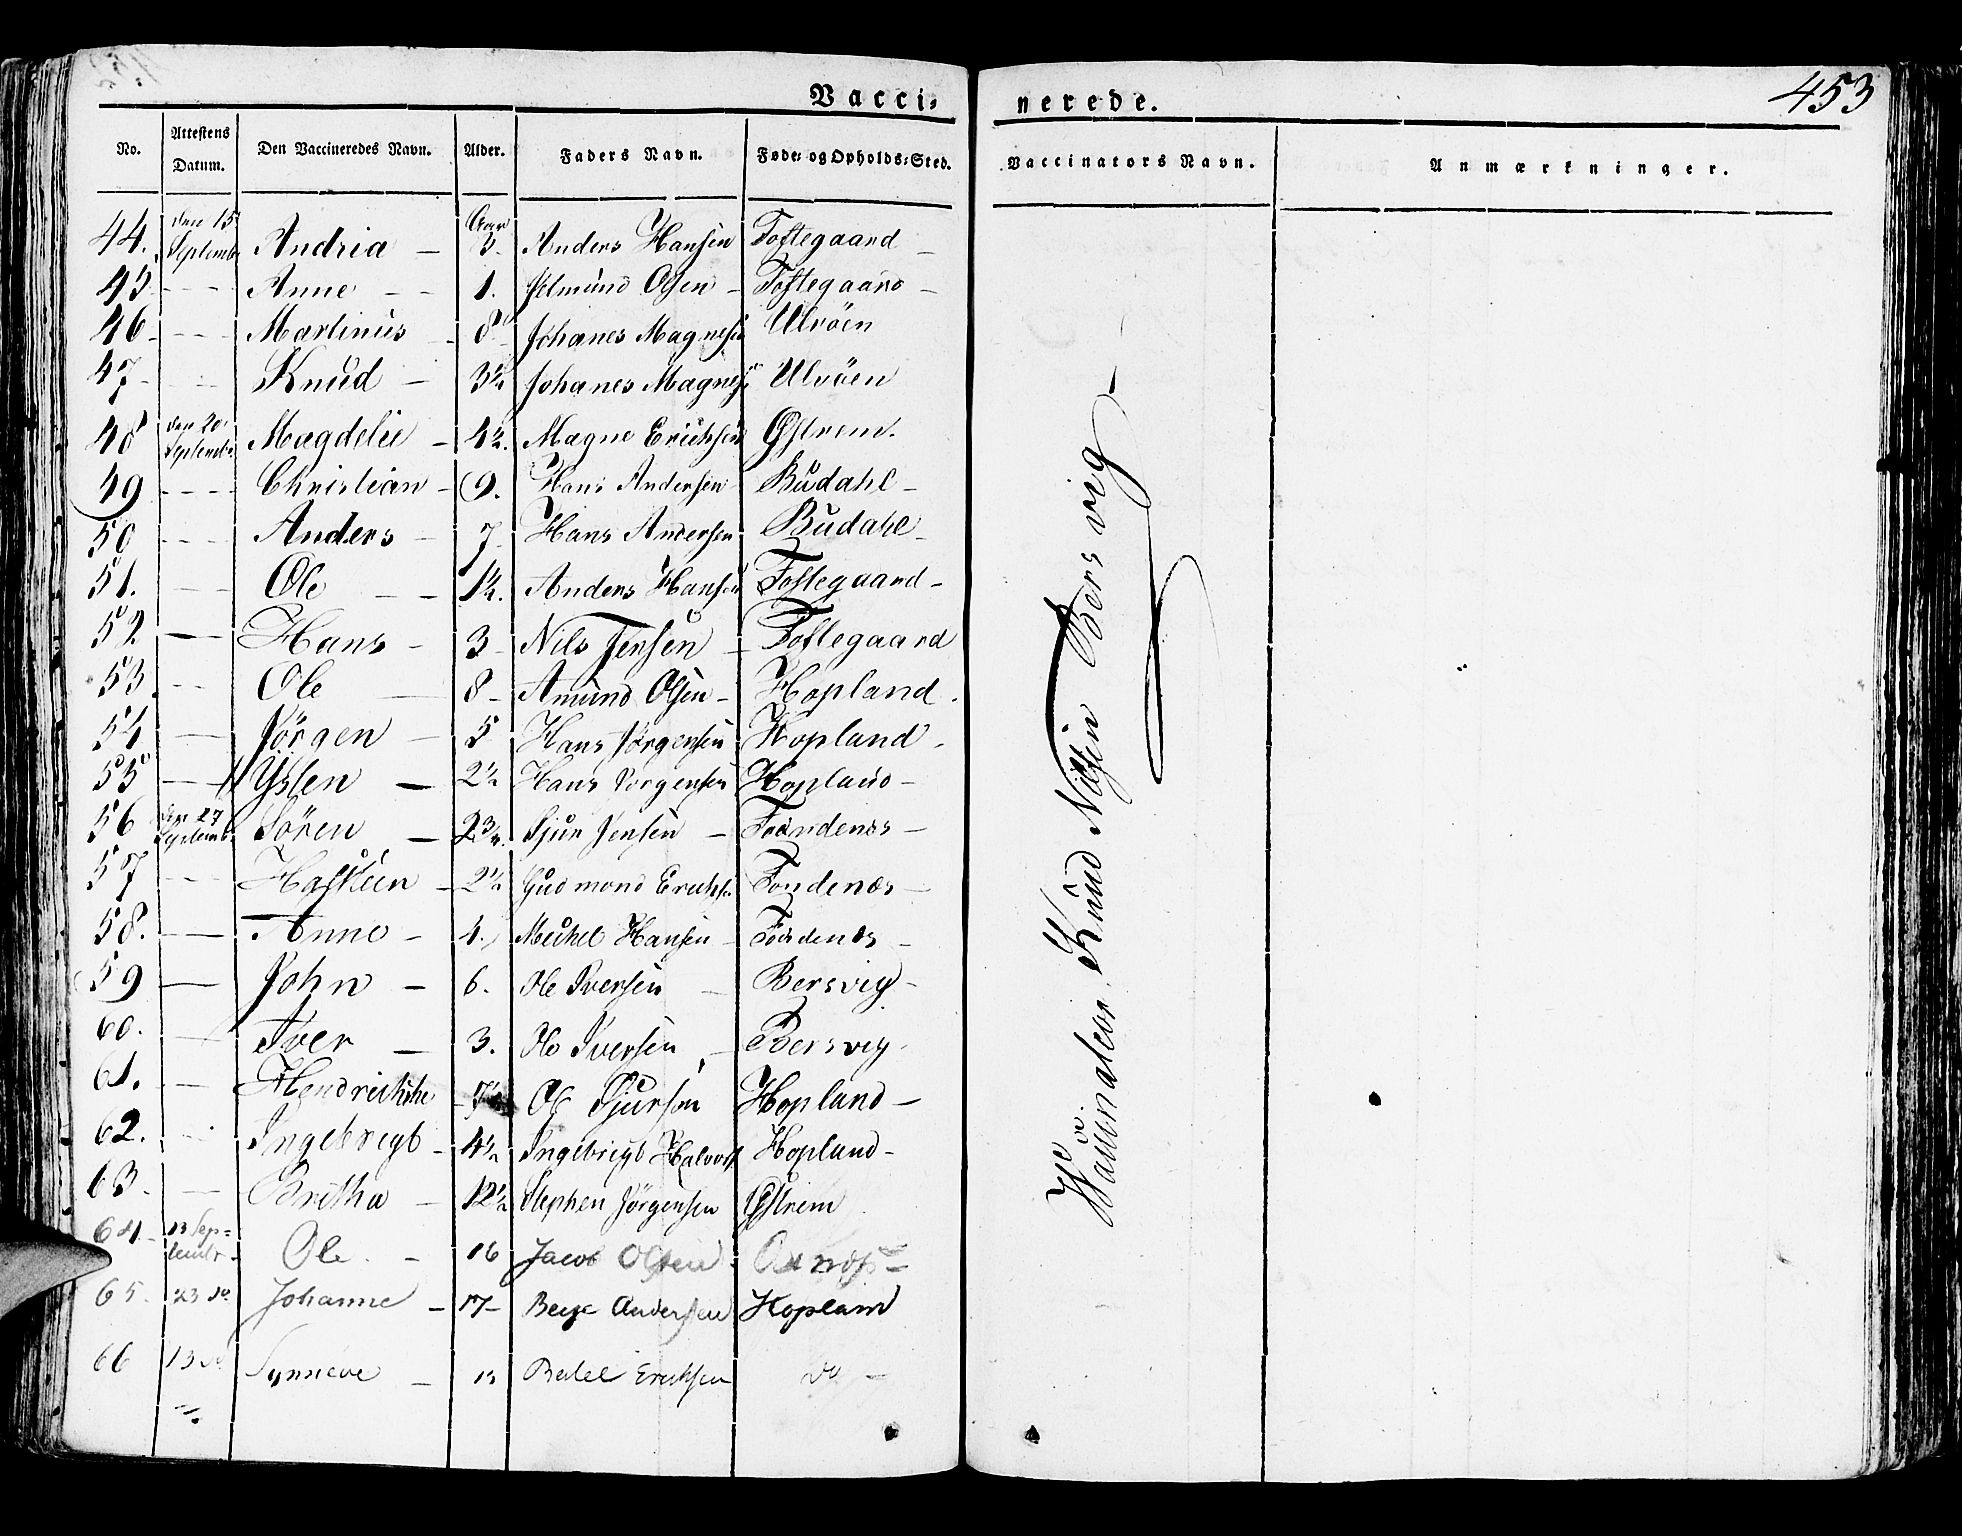 453
Vacci- nerede.
No. Attestens Datum. Den Vaccineredes Navn. Alder. Faders Navn. Føde- og Opholds-Sted. Vaccinators Navn. Anmærkninger.
44. den 15 Septembr Andria - Aar 3. Anders Hansen Toftegaard -
45 - - - Anne - - 1. Olsen - Toftegaard -
46 - - - Martinus - 8 Johanes Magnesen Ulvöen
47 - - - Knud - 3½ Johanes Magnes Ulvöen
48 den 20 Septembr Magdele - 4½. Magne Erichsen Østrem.
49 - - - Christian - 9. Hans Andersen Büdahl -
50 - - - Anders - 7 - Hans Andersen Büdahl -
51. - - Ole - - 1½. Anders Hansen Toftegaard -
52 - Hans - 3 - Nils Jensen - Toftegaard
53. - - Ole - 8 - Amund Olsen - Hopland.
54 - Jörgen - 5 Hans Jörgensen Hopland.
55 - Ysten - 2½ Hans Jorgensen Hopland -
56 den 27 Septembr Sören - 2¾. Sjur Jensen - Fondenes -
57 - - Halsten - 2½ Gudmond Erichs Fondenes -
58. - Anne - 4. Michel Hansen - Fondenes -
59 - John - 6. Ole Iversen - Bersvig -
60. - Iver - 3. Ole Iversen - Bersvig -
61. - Hendrichche - 7½ Ole Sjursen Hopland -
62. - Ingebregt - 4½ Ingebrigt Halvors Hopland -
63. - Britha - 12½ Stephen Jörgensen Østrem
64 - 13 September - Ole. - 16 Jacob Olsen -
65. 23 do Johanne - 17 - Andersen Hopland
66 13 do Synneve - 13 Botel Erichsen do -
Vaccinateor. Knud Nilsen Bersvig